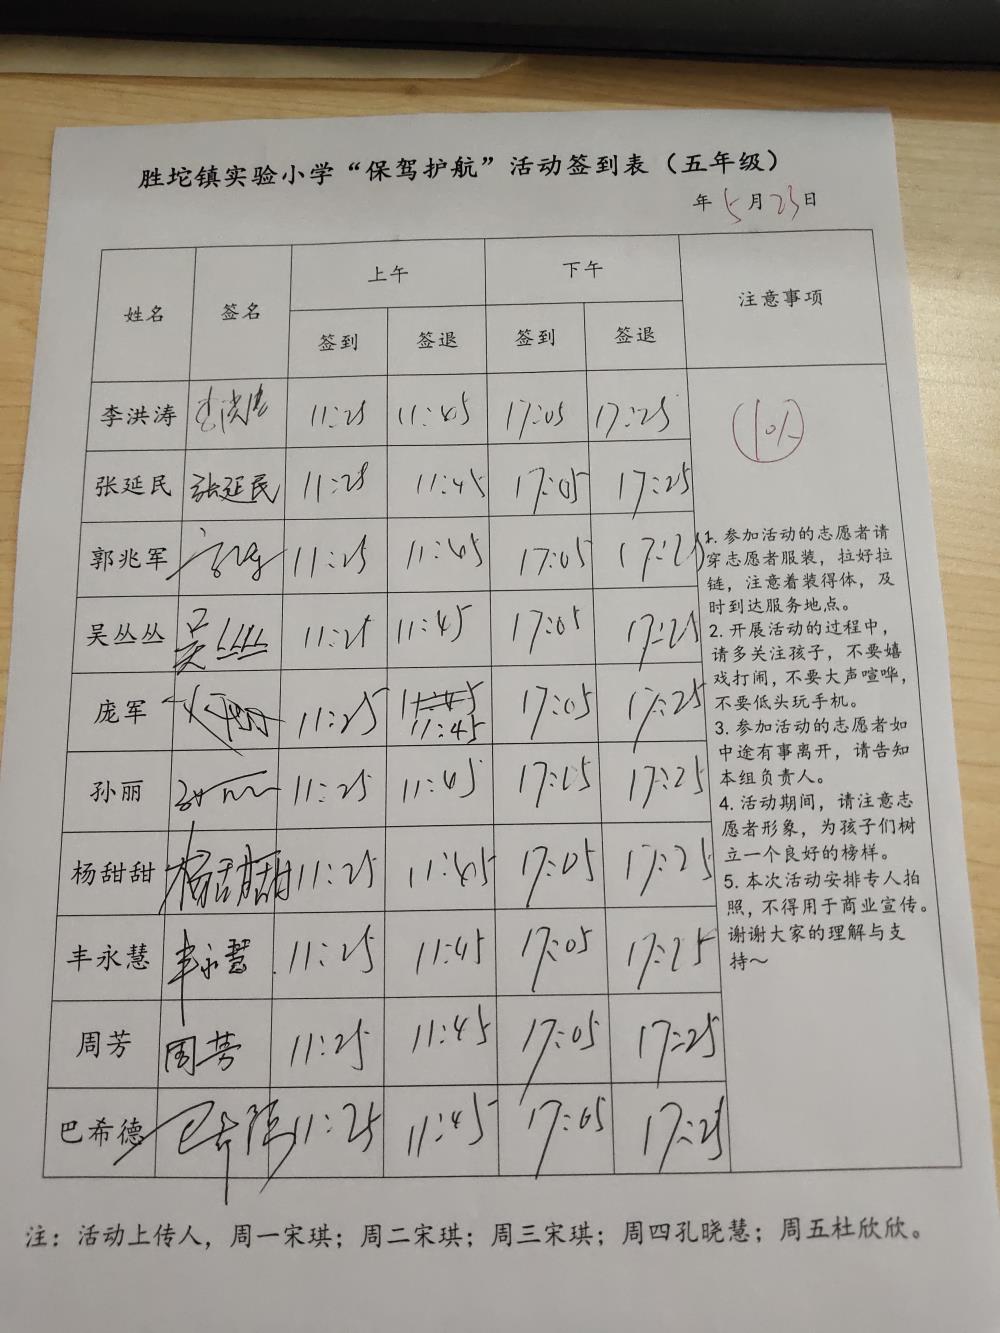 胜坨镇实验小学“保驾护航”活动签到表（五年级）
年 5月23日
姓名 签名 上午 下午 注意事项
签到 签退 签到 签退
李洪涛 李洪涛 11:25 11:45 17:05 17:25
张延民 张延民 11:25 11:45 17:05 17:25
郭兆军 11:25 11:45 17:05 17:25
吴丛丛 吴丛丛 11:25 11:45 17:05 17:25
庞军 11:25 11:45 17:05 17:25
孙丽 孙丽 11:25 11:45 17:05 17:25
杨甜甜 杨甜甜 11:25 11:45 17:05 17:25
丰永慧 丰永慧 11:25 11:45 17:05 17:25
周芳 周芳 11:25 11:45 17:05 17:25
巴希德 巴希德 11:25 11:45 17:05 17:25
10人
1. 参加活动的志愿者请
穿志愿者服装，拉好拉
链，注意着装得体，及
时到达服务地点。
2. 开展活动的过程中，
请多关注孩子，不要嬉
戏打闹，不要大声喧哗，
不要低头玩手机。
3. 参加活动的志愿者如
中途有事离开，请告知
本组负责人。
4. 活动期间，请注意志
愿者形象，为孩子们树
立一个良好的榜样。
5. 本次活动安排专人拍
照，不得用于商业宣传。
谢谢大家的理解与支
持～
注：活动上传人，周一宋琪；周二宋琪；周三宋琪；周四孔晓慧；周五杜欣欣。